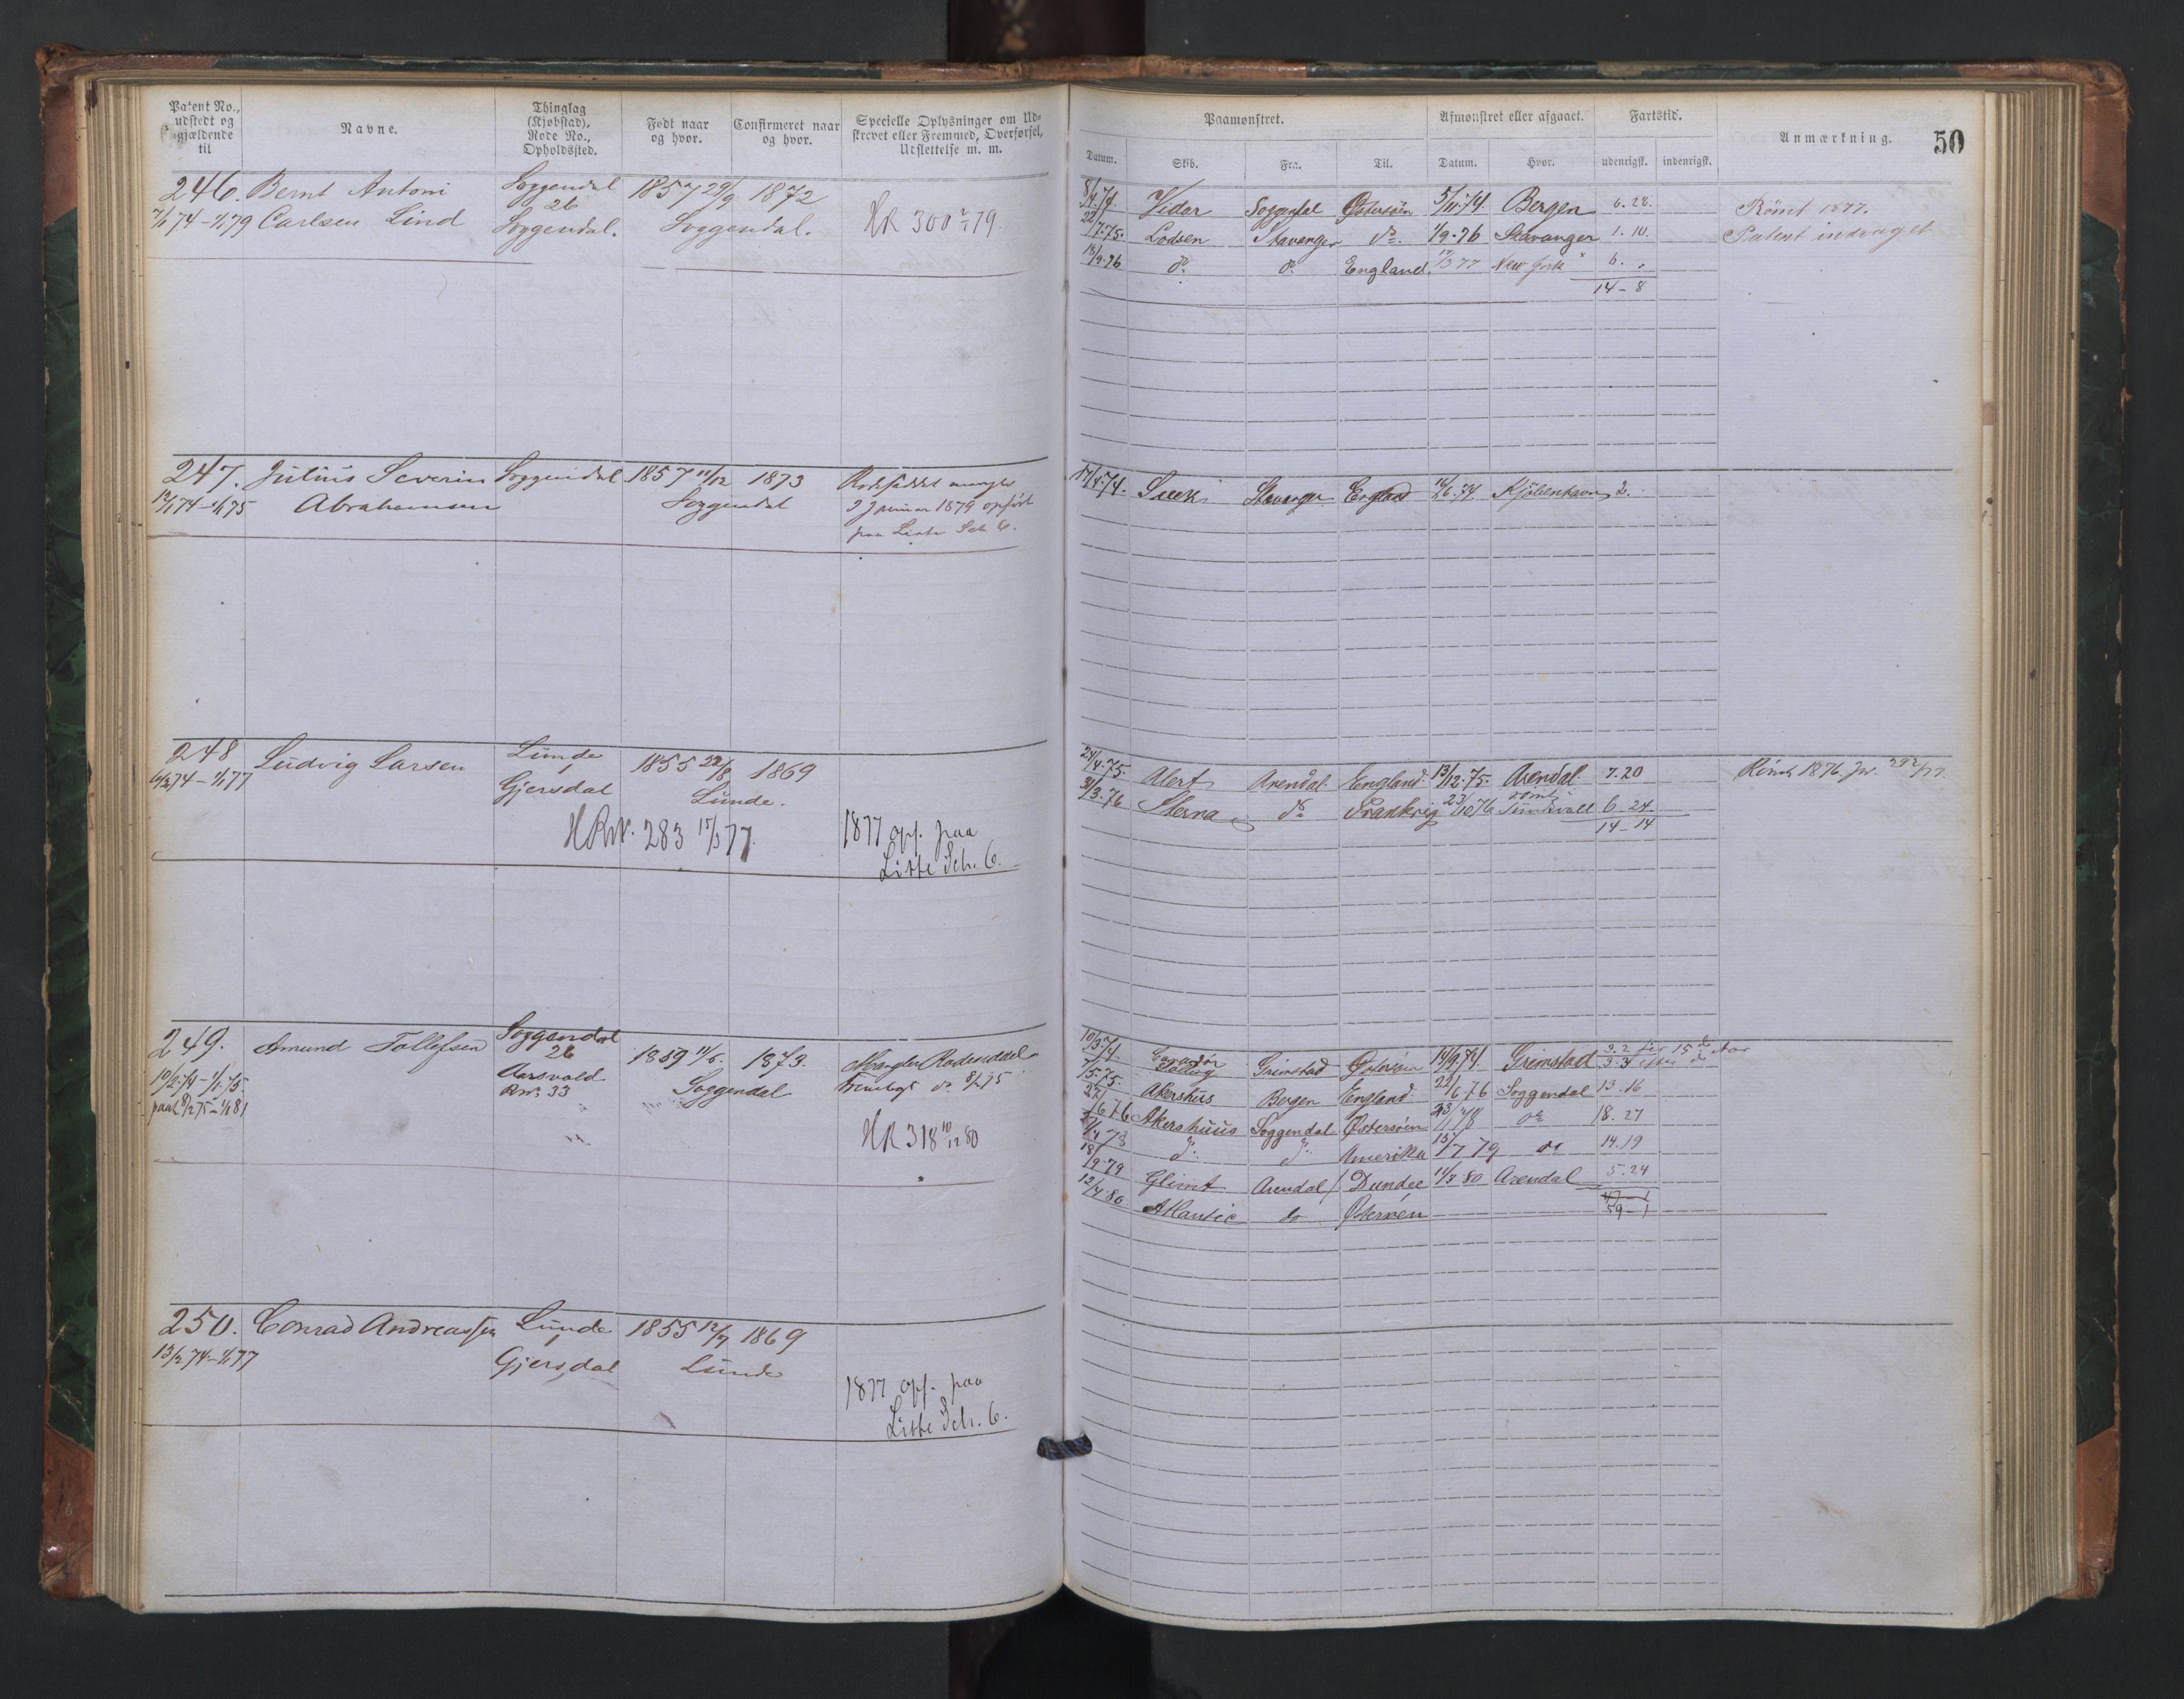 Patent No., udstedt og gjældende til
Navne.
Thinglag (Kjøbstad), Rode No., Opholdssted.
Født naar og hvor.
Confirmeret naar og hvor.
Specielle Oplysninger om Udskrevet eller Fremmed, Overførsel, Udslettelse m. m.
Paamønstret.
Afmønstret eller afgaaet.
Fartstid.
Anmærkning.
50
Datum.
Skib.
Fra.
Til.
Datum.
Hvor.
udenrigsk.
indenrigsk.
246. Bernt Antoni Soggendal 1857 29/9 1872
26
7/1 74 - 1/1 79 Carlsen Lind Soggendal. Soggendal. HR 300 2/1 79
8/4 74 Vidar Soggendal Østersøen 5/11 74 Bergen 6. 28. Rømt 1877.
22/7 75. Lodsen Stavanger do. 1/9 76 Stavanger 1. 10. Patent indraget
18/9 76 do. do. England 17/3 77 New York 6. "
14 - 8
247. Julius Severin Soggendal 1857 11/12 1873
12/1 74 - 1/1 75 Abrahamsen Soggendal
2 Januar 1879 opført
paa Liste Sch 6.
17/4 74. Stavanger England 16/6 74. Kjöbenhavn 2.
248 Ludvig Larsen Lunde 1855 22/8 1869
1
6/2 74 - 1/1 77 Gjersdal Lunde.
HRN. 283 15/3 77. 1877 opf. paa
Liste Sch. 6.
24/4 75. Alert Arendal England 13/12 75. Arendal 7. 20 Rømt 1876.
31/3 76 Sterna do Frankrig 23/10 76 rømt Sundsvall 6 - 24
14 - 14
249. Amund Tollefsen Soggendal 1859 11/5. 1873. Mangler Rodeseddel
26
10/2 74 - 1/1 75 Aarsvold Soggendal
paat 8/2 75 - 1/1 81 RNo 33
HR 318 10/12 80
10/3 74. Grimstad Østersøen 14/9 74. Grimstad 3. 2 før 15de Aar
3. 3 efter do
7/5 75. Akershus Bergen England 22/6 76 Soggendal 13. 16
27/6 76 Akershuus Soggendal Østersøen do 18. 27
do. do. Amerika 15/7 79 do 14. 19
18/9 79 Glimt Arendal Dundee 11/3 80 Arendal 5. 24
12/4 80 Atlantic do Østersøen 59 - 1
250. Conrad Andreassen Lunde 1855 12/7 1869
1
13/2 74 - 1/1 77 Gjersdal Lunde
1877 opf. paa
Liste Sch. 6.